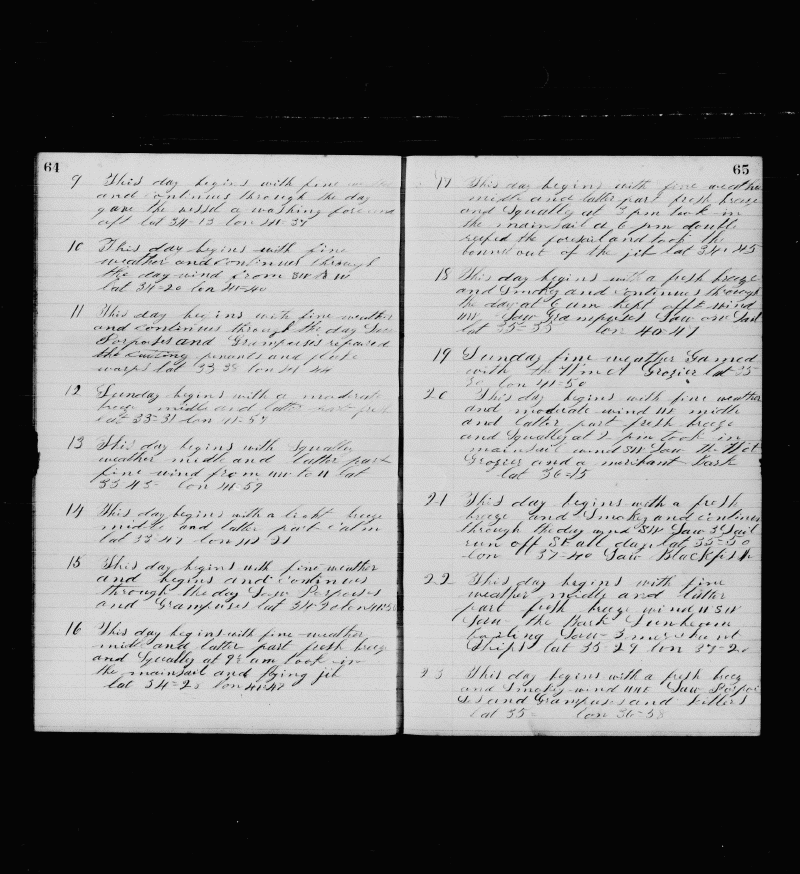 64
9 This day begins with fine
and continues through the day
gave the vessel a washing fore and
aft lat 34-13 lon 41-37
10 This day begins with fine
weather and continues through
the day wind from SW
lat 34-20 lon 41-40
11 This day begins with fine weather
and continues through the day Saw
Porposes and Grampuses repaired
the penants and
warps lat 33 38 lon 41 44
12 Sunday begins with a moderate
breeze midle and latter part fresh
lat 33-31 lon 41-57
13 This day begins with Squally
weather midle and latter part
fine wind from NW to N lat
33-45- lon 41-59
14 This day begins with a light breeze
midle and latter part calm
lat 33-47 lon 41
15 This day begins with fine weather
and begins and continues
through the day Saw Porposes
and Grampuses lat 34-2 lon
16 This day begins with fine weather
midle and latter part fresh breeze
and Squally at am took in
the mainsail and flying jib
lat 34-2 lon 41-47
65
17 This day begins with fine weather
midle and latter part fresh breeze
and Squally at 3 pm took in
the mainsail at 6 pm double
reefed the foresail and took the
bonnet out of the jib lat 34 45
18 This day begins with a fresh breeze
and Smoky and continues through
the day at 6 am kept off wind
Saw Grampuses Saw one Sail
lat 35-35 lon 40-47
19 Sunday fine weather Gamed
with the Wm A Grozier lat 35
30 lon 41-50
20 This day begins with fine weather
and moderate wind NE midle
and latter part fresh breeze
and Squally at 2 pm took in
mainsail wind SW Saw the Wm A
Grozier and a merchant bark
lat 36-15
21 This day begins with a fresh
breeze and Smoky and continues
through the day wind SW Saw 3 Sail
run off SE all day lat 35-50
lon 37-40 Saw Blackfish
22 This day begins with fine
weather midle and latter
part fresh breeze wind W SW
Saw the Bark Sunbeam
boiling Saw 3 merchant
Ships lat 35-29 lon 37-20
23 This day begins with a fresh breeze
and Smoky wind Saw Porpos
es and Grampuses and killers
lat 35 lon 36-58